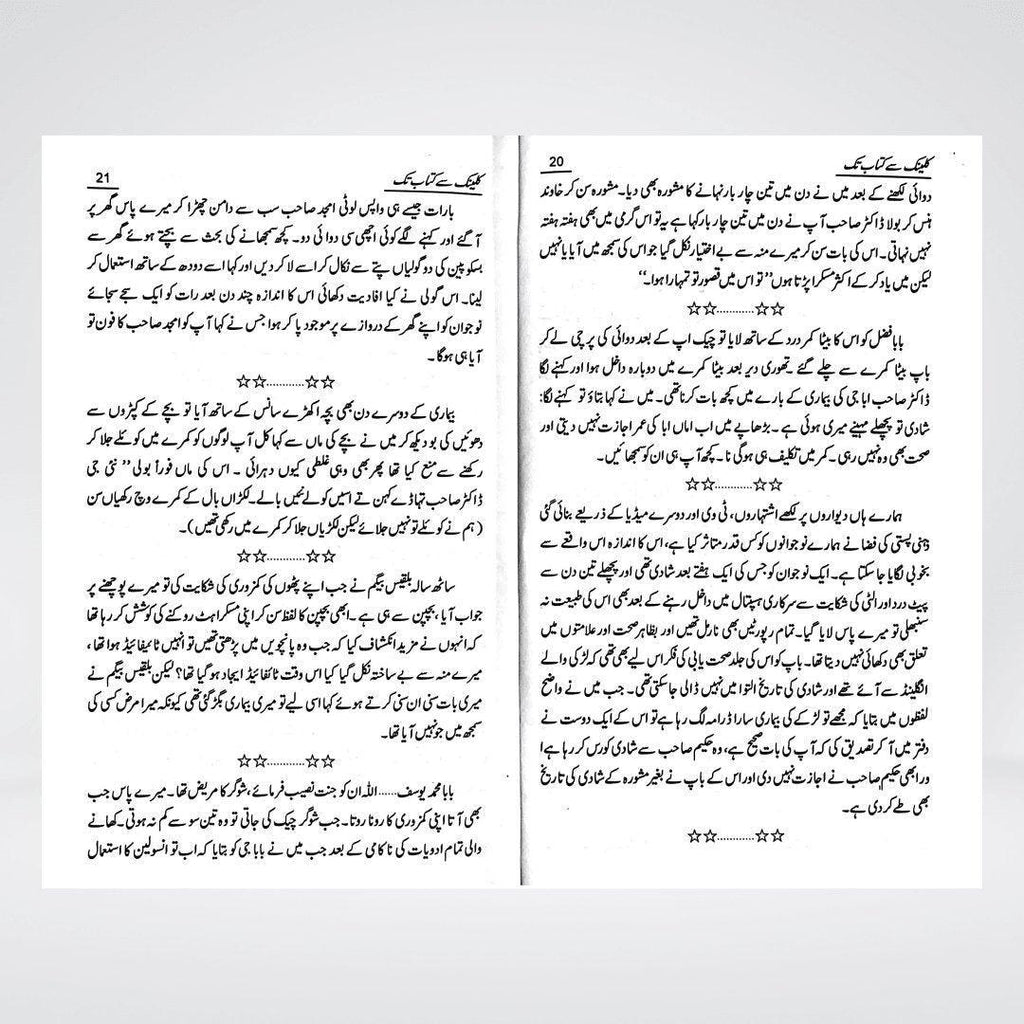 کلینک سے کتاب تک
20
دوائی لکھنے کے بعد میں نے دن میں تین چار بار نہانے کا مشورہ بھی دیا۔ مشورہ سن کر خاوند
ہنس کر بولا ڈاکٹر صاحب آپ نے دن میں تین چار بار کہا ہے یہ تو اس گرمی میں بھی ہفتہ ہفتہ
نہیں نہاتی۔ اس کی بات سن کر میرے منہ سے بے اختیار نکل گیا جو اس کی سمجھ میں آیا یا نہیں
لیکن میں یاد کر کے اکثر مسکرا پڑتا ہوں ’’تو اس میں قصور تو تمہارا ہوا۔‘‘
☆☆............☆☆
بابا فضل کو اس کا بیٹا کمر درد کے ساتھ لایا تو چیک اپ کے بعد دوائی کی پرچی لے کر
باپ بیٹا کمرے سے چلے گئے۔ تھوڑی دیر بعد بیٹا کمرے میں دوبارہ داخل ہوا اور کہنے لگا
ڈاکٹر صاحب ابا جی کی بیماری کے بارے میں کچھ بات کرنا تھی۔ میں نے کہا بتاؤ تو کہنے لگا:
شادی تو پچھلے مہینے میری ہوئی ہے۔ بڑھاپے میں اب اماں ابا کی عمر اجازت نہیں دیتی اور
صحت بھی وہ نہیں رہی۔ کمر میں تکلیف ہی ہوگی نا۔ کچھ آپ ہی ان کو سمجھائیں۔
☆☆............☆☆
ہمارے ہاں دیواروں پر لکھے اشتہاروں، ٹی وی اور دوسرے میڈیا کے ذریعے بنائی گئی
ذہنی پستی کی فضا نے ہمارے نوجوانوں کو کس قدر متاثر کیا ہے، اس کا اندازہ اس واقعے سے
بخوبی لگایا جا سکتا ہے۔ ایک نوجوان کو جس کی ایک ہفتے بعد شادی تھی اور پچھلے تین دن سے
پیٹ درد اور الٹی کی شکایت سے سرکاری ہسپتال میں داخل رہنے کے بعد بھی اس کی طبیعت نہ
سنبھلی تو میرے پاس لایا گیا۔ تمام رپورٹیں بھی نارمل تھیں اور بظاہر صحت اور علامتوں میں
تعلق بھی دکھائی نہیں دیتا تھا۔ باپ کو اس کی جلد صحت یابی کی فکر اس لیے بھی تھی کہ لڑکی والے
انگلینڈ سے آئے تھے اور شادی کی تاریخ التوا میں نہیں ڈالی جا سکتی تھی۔ جب میں نے واضح
لفظوں میں بتایا کہ مجھے تو لڑکے کی بیماری سارا ڈرامہ لگ رہا ہے تو اس کے ایک دوست نے
دفتر میں آ کر تصدیق کی کہ آپ کی بات صحیح ہے، وہ حکیم صاحب سے شادی کورس کر رہا ہے ا
ور ابھی حکیم صاحب نے اجازت نہیں دی اور اس کے باپ نے بغیر مشورہ کے شادی کی تاریخ
بھی طے کر دی ہے۔
☆☆............☆☆
کلینک سے کتاب تک
21
بارات جیسے ہی واپس لوٹی امجد صاحب سب سے دامن چھڑا کر میرے پاس گھر پر
آ گئے اور کہنے لگے کوئی اچھی سی دوائی دو۔ کچھ سمجھانے کی بحث سے بچتے ہوئے گھر سے
بسکوپین کی دو گولیاں پتے سے نکال کر اسے لا کر دیں اور کہا اسے دودھ کے ساتھ استعمال کر
لینا۔ اس گولی نے کیا افادیت دکھائی اس کا اندازہ چند دن بعد رات کو ایک سجے سجائے
نوجوان کو اپنے گھر کے دروازے پر موجود پا کر ہوا جس نے کہا آپ کو امجد صاحب کا فون تو
آیا ہی ہوگا۔
☆☆............☆☆
بیماری کے دوسرے دن بھی بچہ اکھڑے سانس کے ساتھ آیا تو بچے کے کپڑوں سے
دھوئیں کی بو دیکھ کر میں نے بچے کی ماں سے کہا کل آپ لوگوں کو کمرے میں کوئلے جلا کر
رکھنے سے منع کیا تھا پھر بھی وہی غلطی کیوں دہرائی۔ اس کی ماں فوراً بولی ’’نئی جی
ڈاکٹر صاحب تہاڈے کہن تے اسیں کولے نئیں بالے۔ لکڑاں بال کے کمرے وچ رکھیاں سن
(ہم نے کوئلے تو نہیں جلائے لیکن لکڑیاں جلا کر کمرے میں رکھی تھیں)۔
☆☆............☆☆
ساٹھ سالہ بلقیس بیگم نے جب اپنے پٹھوں کی کمزوری کی شکایت کی تو میرے پوچھنے پر
جواب آیا، بچپن سے ہی ہے۔ ابھی بچپن کا لفظ سن کر اپنی مسکراہٹ روکنے کی کوشش کر رہا تھا
کہ انہوں نے مزید انکشاف کیا کہ جب وہ پانچویں میں پڑھتی تھیں تو انہیں ٹائیفائیڈ ہوا تھا،
میرے منہ سے بے ساختہ نکل گیا کیا اس وقت ٹائفائیڈ ایجاد ہو گیا تھا؟ لیکن بلقیس بیگم نے
میری بات سنی ان سنی کرتے ہوئے کہا اسی لیے تو میری بیماری بگڑ گئی تھی کیونکہ میرا مرض کسی کی
سمجھ میں جو نہیں آیا تھا۔
☆☆............☆☆
بابا محمد یوسف...... اللہ ان کو جنت نصیب فرمائے، شوگر کا مریض تھا۔ میرے پاس جب
بھی آتا اپنی کمزوری کا رونا روتا۔ جب شوگر چیک کی جاتی تو وہ تین سو سے کم نہ ہوتی۔ کھانے
والی تمام ادویات کی ناکامی کے بعد جب میں نے بابا جی کو بتایا کہ اب تو انسولین کا استعمال